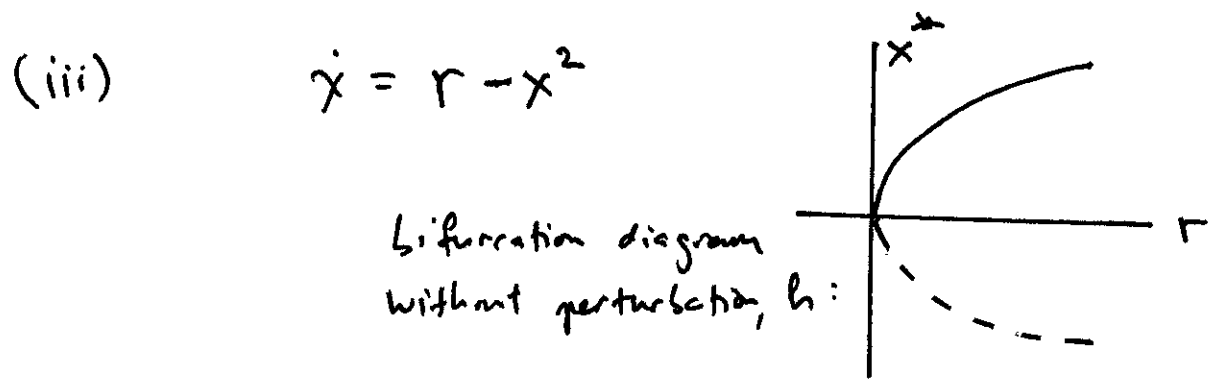 (iii) ẋ = r - x²
x*
r
bifurcation diagram
without perturbation, h: